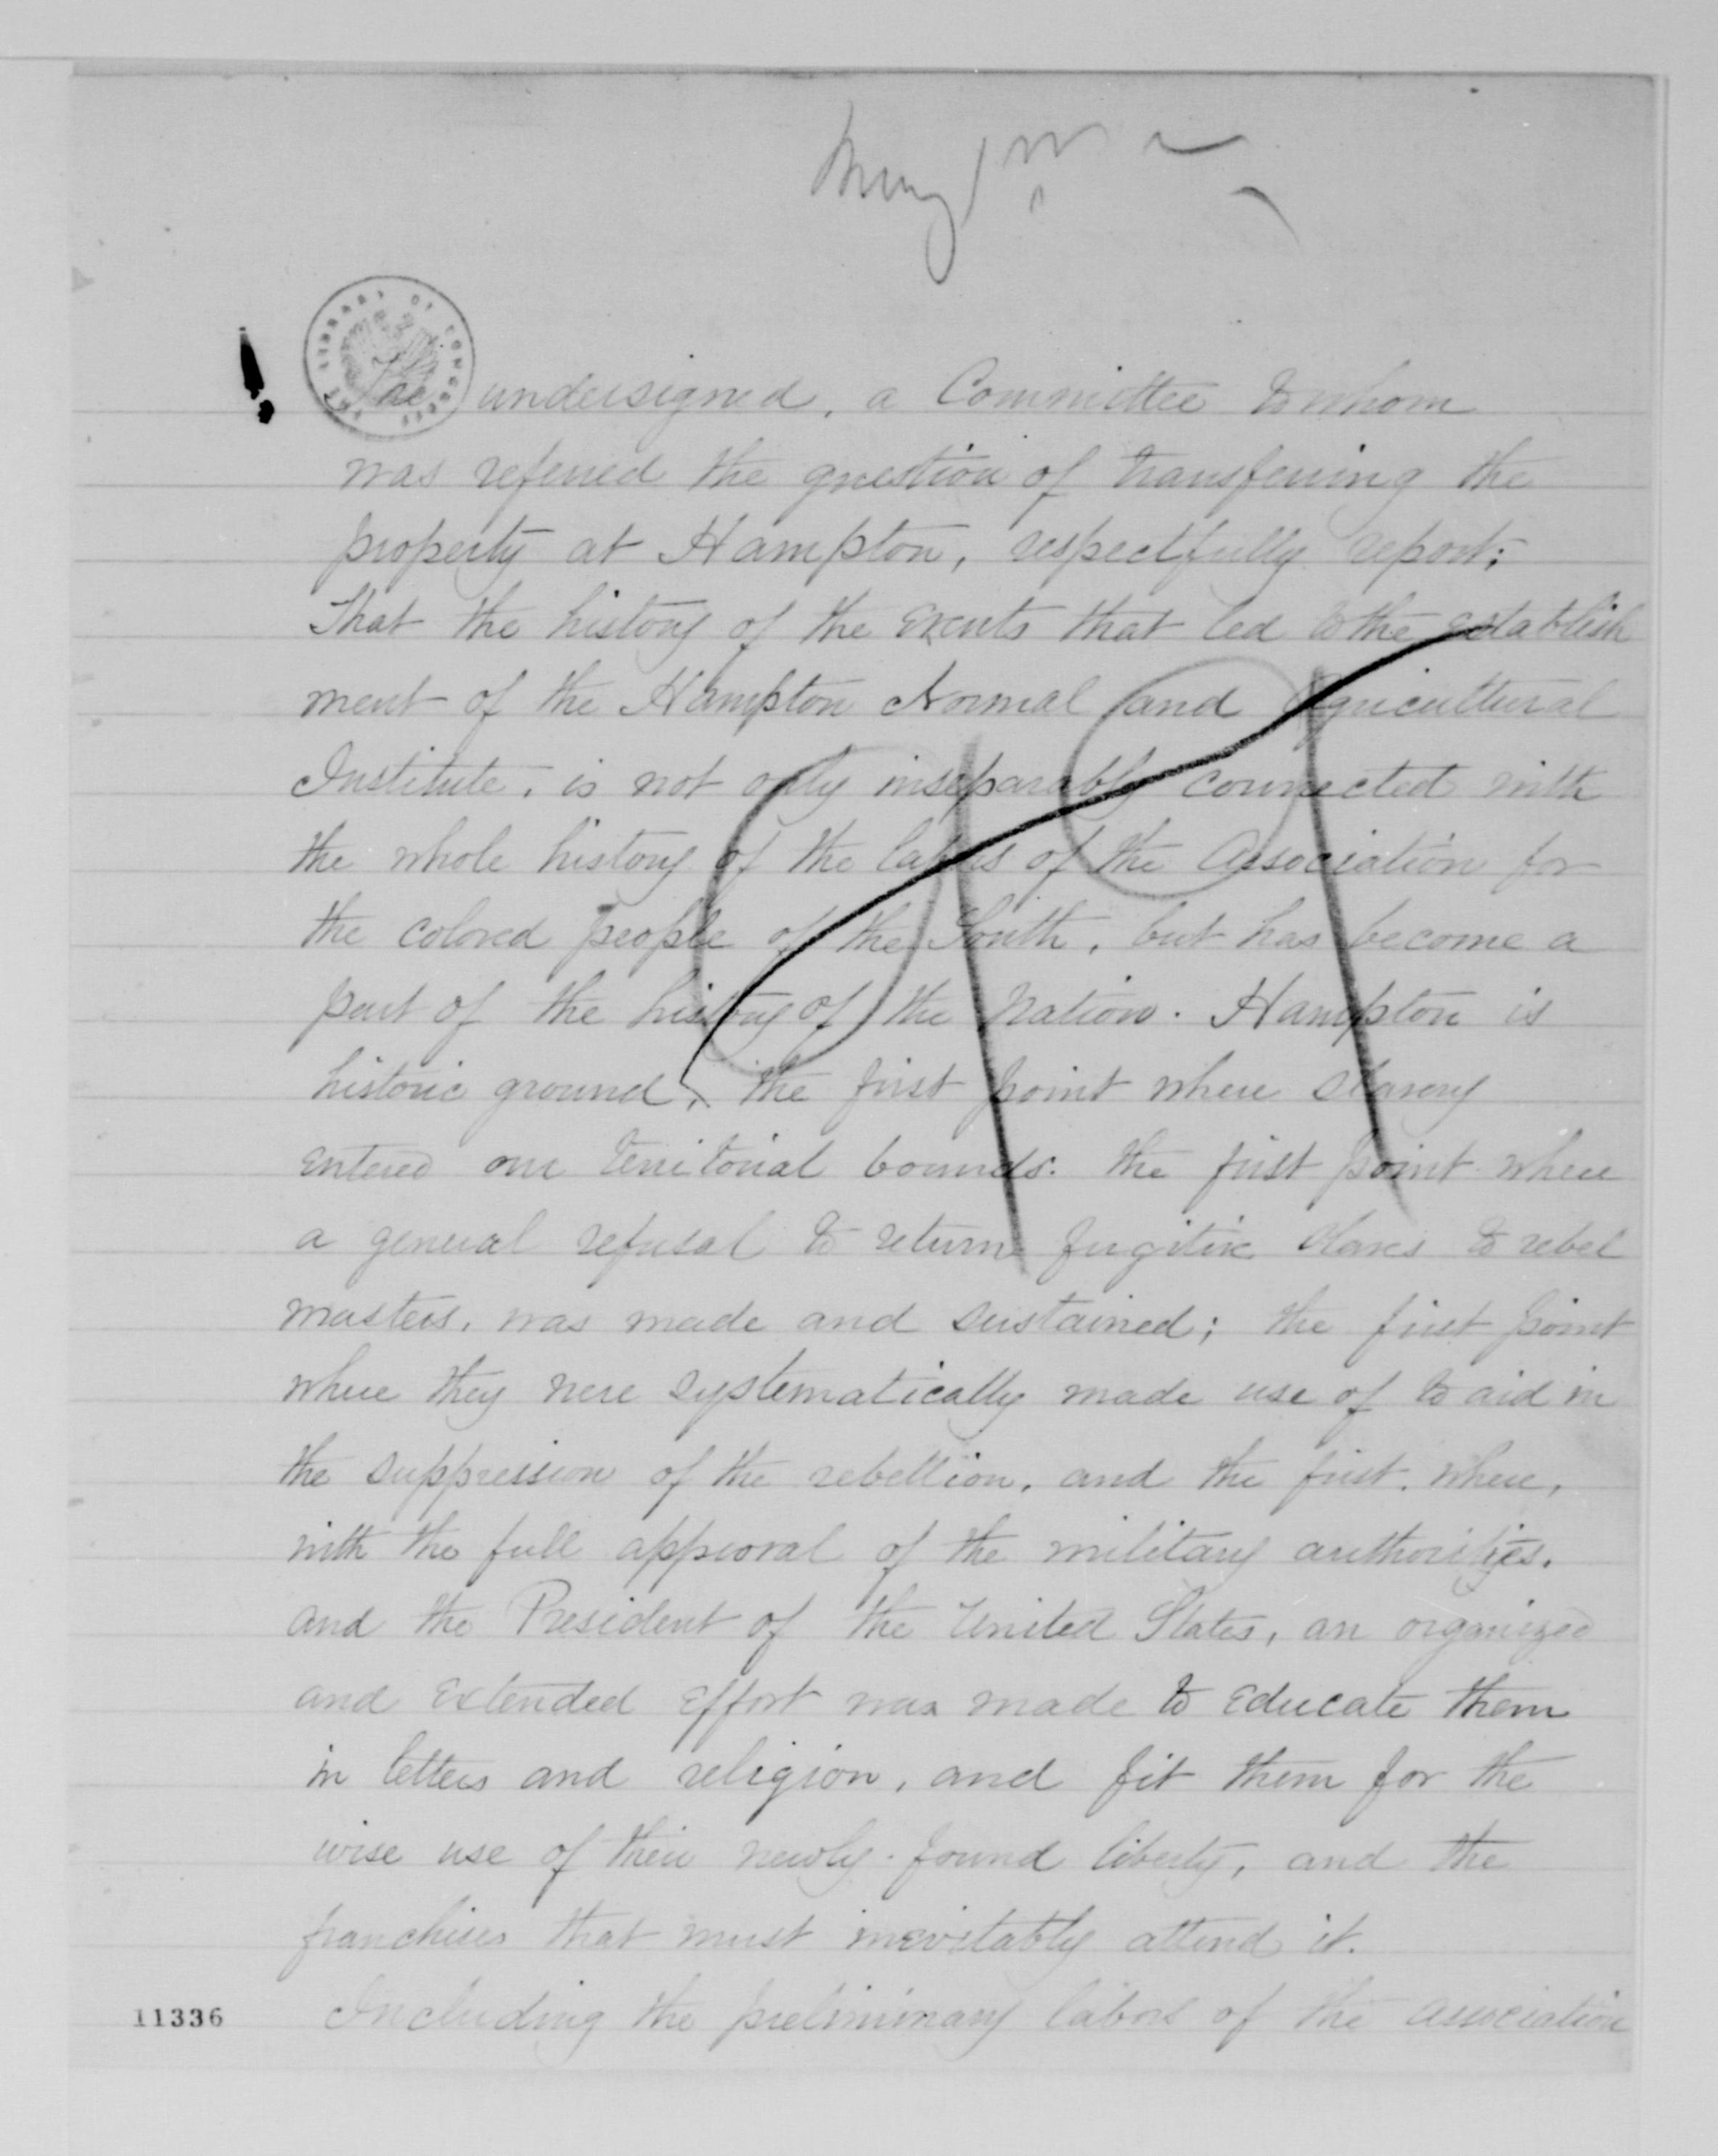 THE LIBRARY OF CONGRESS
The undersigned, a Committee to whom
was referred the question of transferring the
property at Hampton, respectfully report;
That the history of the events that led to the establish
ment of the Hampton Normal and Agricultural
Institute, is not only inseparably connected with
the whole history of the labors of the Association for
the colored people of the South, but has become a
part of the history of the Nation. Hampton is
historic ground, the first point where slavery
entered our territorial bounds. the first point where
a general refusal to return fugitive slaves to rebel
masters, was made and sustained; the first point
where they were systematically made use of to aid in
the suppression of the rebellion, and the first, where,
with the full approval of the military authorities,
and the President of the United States, an organized
and extended effort was made to educate them
in letters and religion, and fit them for the
wise use of their newly-found liberty, and the
franchises that must inevitably attend it.
11336 Including the preliminary labors of the association